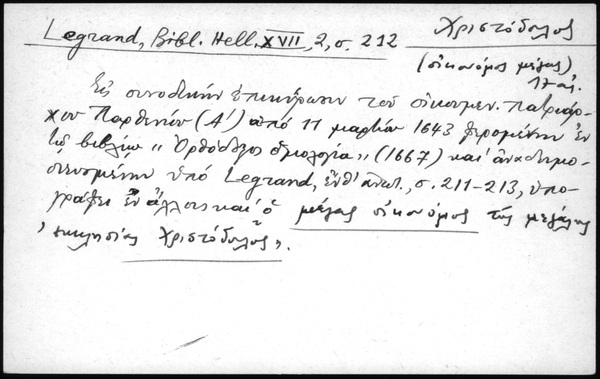 Legrand, Bibl. Hell. XVII, 2, σ. 212
Χριστόδουλος
(οἰκονόμος μέγας)
17 αἰ.
Εἰς συνοδικὴν ἐπικύρωσιν τοῦ οἰκουμεν. πατριάρ-
χου Παρθενίου (Α´) ἀπὸ 11 μαρτίου 1643 φερομένην ἐν
τῷ βιβλίῳ "Ὀρθόδοξος ὁμολογία" (1667) καὶ ἀναδημο-
σιευομένην ὑπὸ Legrand, ἔνθ' ἀνωτ., σ. 211-213, ὑπο-
γράφει ἐν ἄλλοις καὶ ὁ "μέγας οἰκονόμος τῆς μεγάλης
ἐκκλησίας Χριστόδουλος".